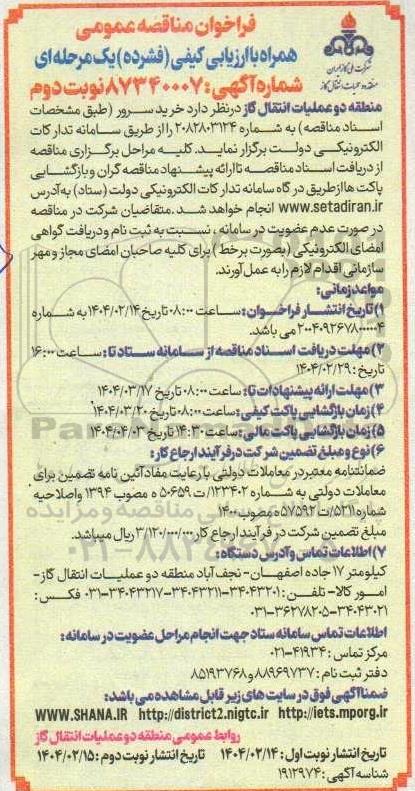 فراخوان مناقصه عمومی
همراه با ارزیابی کیفی (فشرده) یک مرحله ای
شماره آگهی: ۸۷۳۴۰۰۰۷ نوبت دوم
شرکت ملی گاز ایران
منطقه دو عملیات انتقال گاز
منطقه دو عملیات انتقال گاز در نظر دارد خرید سرور (طبق مشخصات
اسناد مناقصه) به شماره ۲۰۸۲۸۰۳۱۲۴ را از طریق سامانه تدارکات
الکترونیکی دولت برگزار نماید. کلیه مراحل برگزاری مناقصه
از دریافت اسناد مناقصه تا ارائه پیشنهاد مناقصه گران و بازگشایی
پاکت ها از طریق درگاه سامانه تدارکات الکترونیکی دولت (ستاد) به آدرس
www.setadiran.ir انجام خواهد شد. متقاضیان شرکت در مناقصه
در صورت عدم عضویت در سامانه، نسبت به ثبت نام و دریافت گواهی
امضای الکترونیکی (بصورت برخط) برای کلیه صاحبان امضای مجاز و مهر
سازمانی اقدام لازم را به عمل آورند.
مواعد زمانی:
۱) تاریخ انتشار فراخوان: ساعت ۰۸:۰۰ تاریخ ۱۴۰۴/۰۲/۱۴ به شماره
۲۰۰۴۰۹۲۶۷۸۰۰۰۰۰۴ می باشد.
۲) مهلت دریافت اسناد مناقصه از سامانه ستاد تا: ساعت ۱۶:۰۰
تاریخ: ۱۴۰۴/۰۲/۲۹
۳) مهلت ارائه پیشنهادات تا: ساعت ۰۸:۰۰ تاریخ ۱۴۰۴/۰۳/۱۷
۴) زمان بازگشایی پاکت کیفی: ساعت ۰۸:۰۰ تاریخ ۱۴۰۴/۰۳/۲۰
۵) زمان بازگشایی پاکت مالی: ساعت ۱۴:۳۰ تاریخ ۱۴۰۴/۰۴/۰۳
۶) نوع و مبلغ تضمین شرکت در فرآیند ارجاع کار:
ضمانتنامه معتبر در معاملات دولتی با رعایت مفاد آئین نامه تضمین برای
معاملات دولتی به شماره ۱۲۳۴۰۲/ت ۵۰۶۵۹ ه مصوب ۱۳۹۴ و اصلاحیه
شماره ۵۲۱۱/ت ۵۷۵۹۲ ه مصوب ۱۴۰۰
مبلغ تضمین شرکت در فرآیند ارجاع کار ۳/۱۲۰/۰۰۰/۰۰۰ ریال میباشد.
۷) اطلاعات تماس و آدرس دستگاه:
کیلومتر ۱۷ جاده اصفهان- نجف آباد منطقه دو عملیات انتقال گاز-
امور کالا- تلفن: ۳۴۰۴۳۲۰۱-۳۴۰۴۳۲۱۱-۳۴۰۴۳۲۱۷-۰۳۱ فکس:
۳۴۰۴۳۰۲۱-۳۶۲۷۸۲۰۵-۰۳۱
اطلاعات تماس سامانه ستاد جهت انجام مراحل عضویت در سامانه:
مرکز تماس: ۴۱۹۳۴-۰۲۱
دفتر ثبت نام: ۸۸۹۶۹۷۳۷ و ۸۵۱۹۳۷۶۸
ضمنا آگهی فوق در سایت های زیر قابل مشاهده می باشد:
WWW.SHANA.IR http://district2.nigtc.ir http://iets.mporg.ir
روابط عمومی منطقه دو عملیات انتقال گاز
تاریخ انتشار نوبت اول: ۱۴۰۴/۰۲/۱۴ تاریخ انتشار نوبت دوم: ۱۴۰۴/۰۲/۱۵
شناسه آگهی: ۱۹۱۲۹۷۴